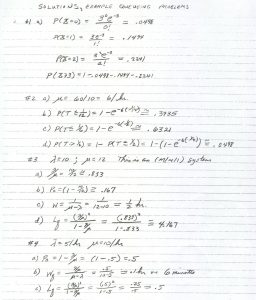 SOLUTIONS, EXAMPLE QUEUEING PROBLEMS
#1 a) P(X=0) = 3⁰e⁻³/0! = .0498
P(X=1) = 3e⁻³/1! = .1494
P(X=2) = 3²e⁻³/2! = .2241
P(X≥3) = 1-.0498-.1494-.2241
#2 a) μ = 60/10 = 6/hr.
b) P(T≤ = 1-e = .3935
c) P(T≤ = 1-e = .6321
d) P(T>½) = 1-P(T≤½) = 1-(1-e = .0498
#3 λ=10; μ=12 This is an (M/M/1) System
a) = .833
b) P₀=(1- ≅ .167
c) W = 1/(μ-λ) = 1/(12-10) = ½ hr.
d) Lq = = (.833)²/(1-.833) ≅ 4.167
#4 λ=5/hr μ=10/hr
a) P₀ = 1- = (1-.5)=.5
b) Wq = = .5/(10-5) = .1 hr or 6 minutes
c) Lq = = (.5)²/(1-.5) = .25/.5 = .5